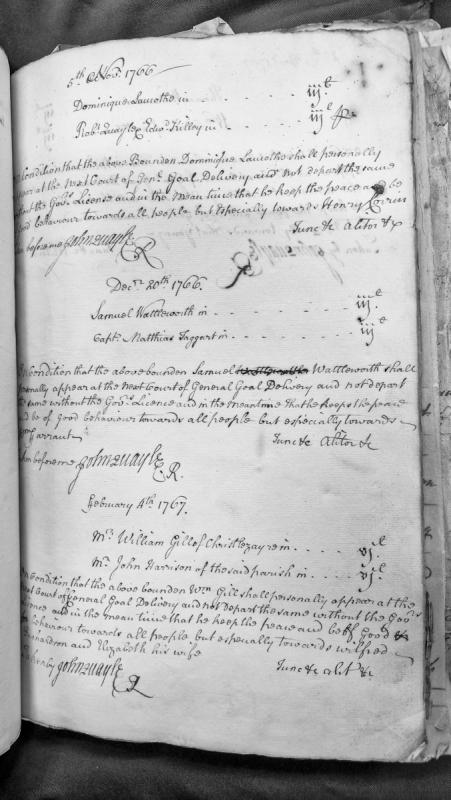 5th Novr. 1766
Dominique Lamothe in - - - - - iij£
Robt. Quayle & Edwd. Killey in - - - - iij£
Condition that the above Bounden Dominique Lamothe shall personally
appear at the Next Court of Genl. Goal Delivery and not depart the same
without the Govrs. License and in the mean time that he keep the peace and be
good behaviour towards all people but Especially towards Henry Corrin
Tunc &c aliter &c
before me John Quayle
C R
Decr. 20th. 1766.
Samuel Wattleworth in - - - - - iij£
Capt. Matthias Taggart in - - - - - iij£
On Condition that the above bounden Samuel Wattleworth shall
personally appear at the Next Court of General Goal Delivery and not depart
the same without the Govrs. Licence and in the meantime that he keeps the peace
and be of Good behaviour towards all people but especially towards
Garraut
Tunc &c Aliter &c
before me John Quayle
C. R.
February 4th. 1767.
Mr. William Gill of Christ Lezayre in . . . . vj£
Mr. John Harrison of the said parish in . . . . vj£
On Condition that the above bounden Wm. Gill shall personally appear at the
Next Court of General Goal Delivery and not depart the same without the Govrs.
Licence and in the mean time that he keep the peace and be of Good
behaviour towards all people but especially towards Wilfred
Richardson and Elizabeth his wife
Tunc &c alitr &c
by John Quayle
C R